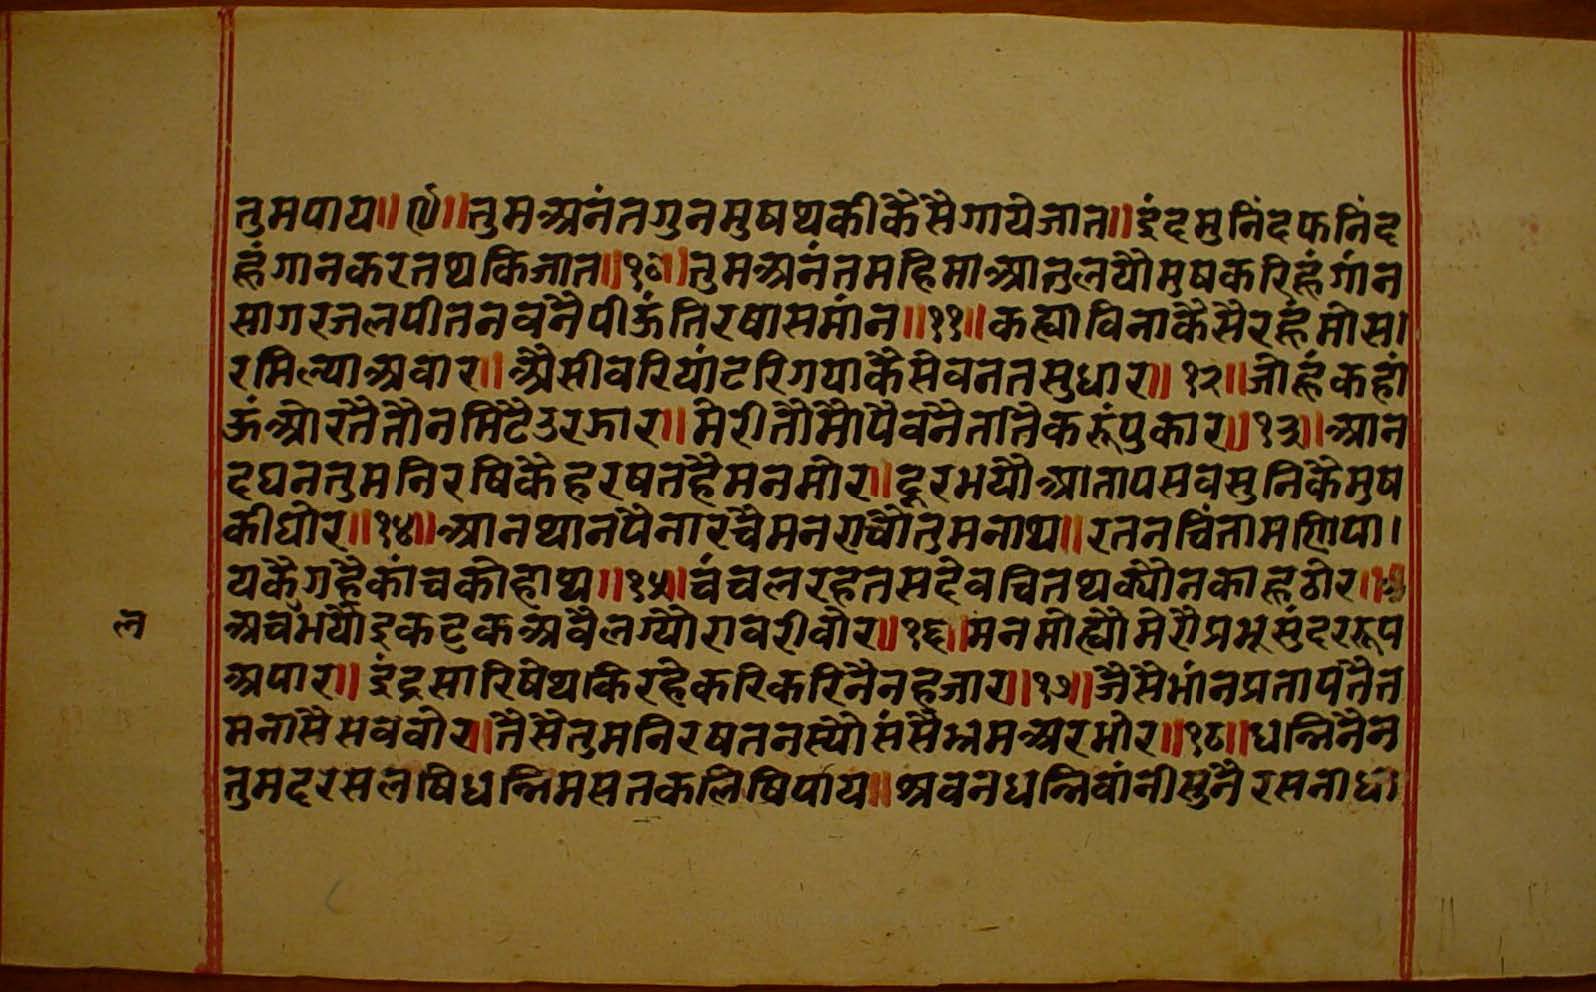 तुमपाय॥९॥तुमअनंतगुनमुषथकीकैसैगायेजात॥इंदमुनिंदफनिंद
ह्रंगानकरतथकिजात॥१०॥तुमअनंतमहिमाआतुलयौमुषकरिह्रंगांन
सागरजलपीतनवनैपीऊंतिरषासमांन॥११॥कह्याविनाकैसैरह्रंमोसा
रमिल्याअवार॥अैसीवरियांटरिगयाकैसेवनतसुधार॥१२॥जोह्रंकहां
ऊंओरतैतौनमिटैउरझार॥मेरीतौमोपैवनैतातैकरूंपुकार॥१३॥आन
दघनतुमनिरषिकेहरषतहैमनमोर॥दूरभयौआतापसवसुनिकैमुष
कीघोर॥१४॥आनथानपैनारचैमनराचौतुमनाथ॥रतनचिंतामणिपा।
यकैगहैकांचकोहाथ॥१५॥चंचलरहतसदेवचितथक्यौनकाह्रठोर॥
अचंभयौइकटकअवैलग्योरावरीवोर॥१६॥मनमोह्यौमेरौप्रभूसुंदररूप
अपार॥इंद्रसारिषेथकिरहेकरिकरिनैनहजार॥१७॥जैसेंभांनप्रतापतैत
मनासैसववोर॥तैसेतुमनिरषतनस्योसंसैभ्रमअरमोर॥१८॥धन्निनैन
तुमदरसलषिधन्निमसतकलिषिपाय॥श्रवनधन्निवांनीसुनैरसनाधा
ल